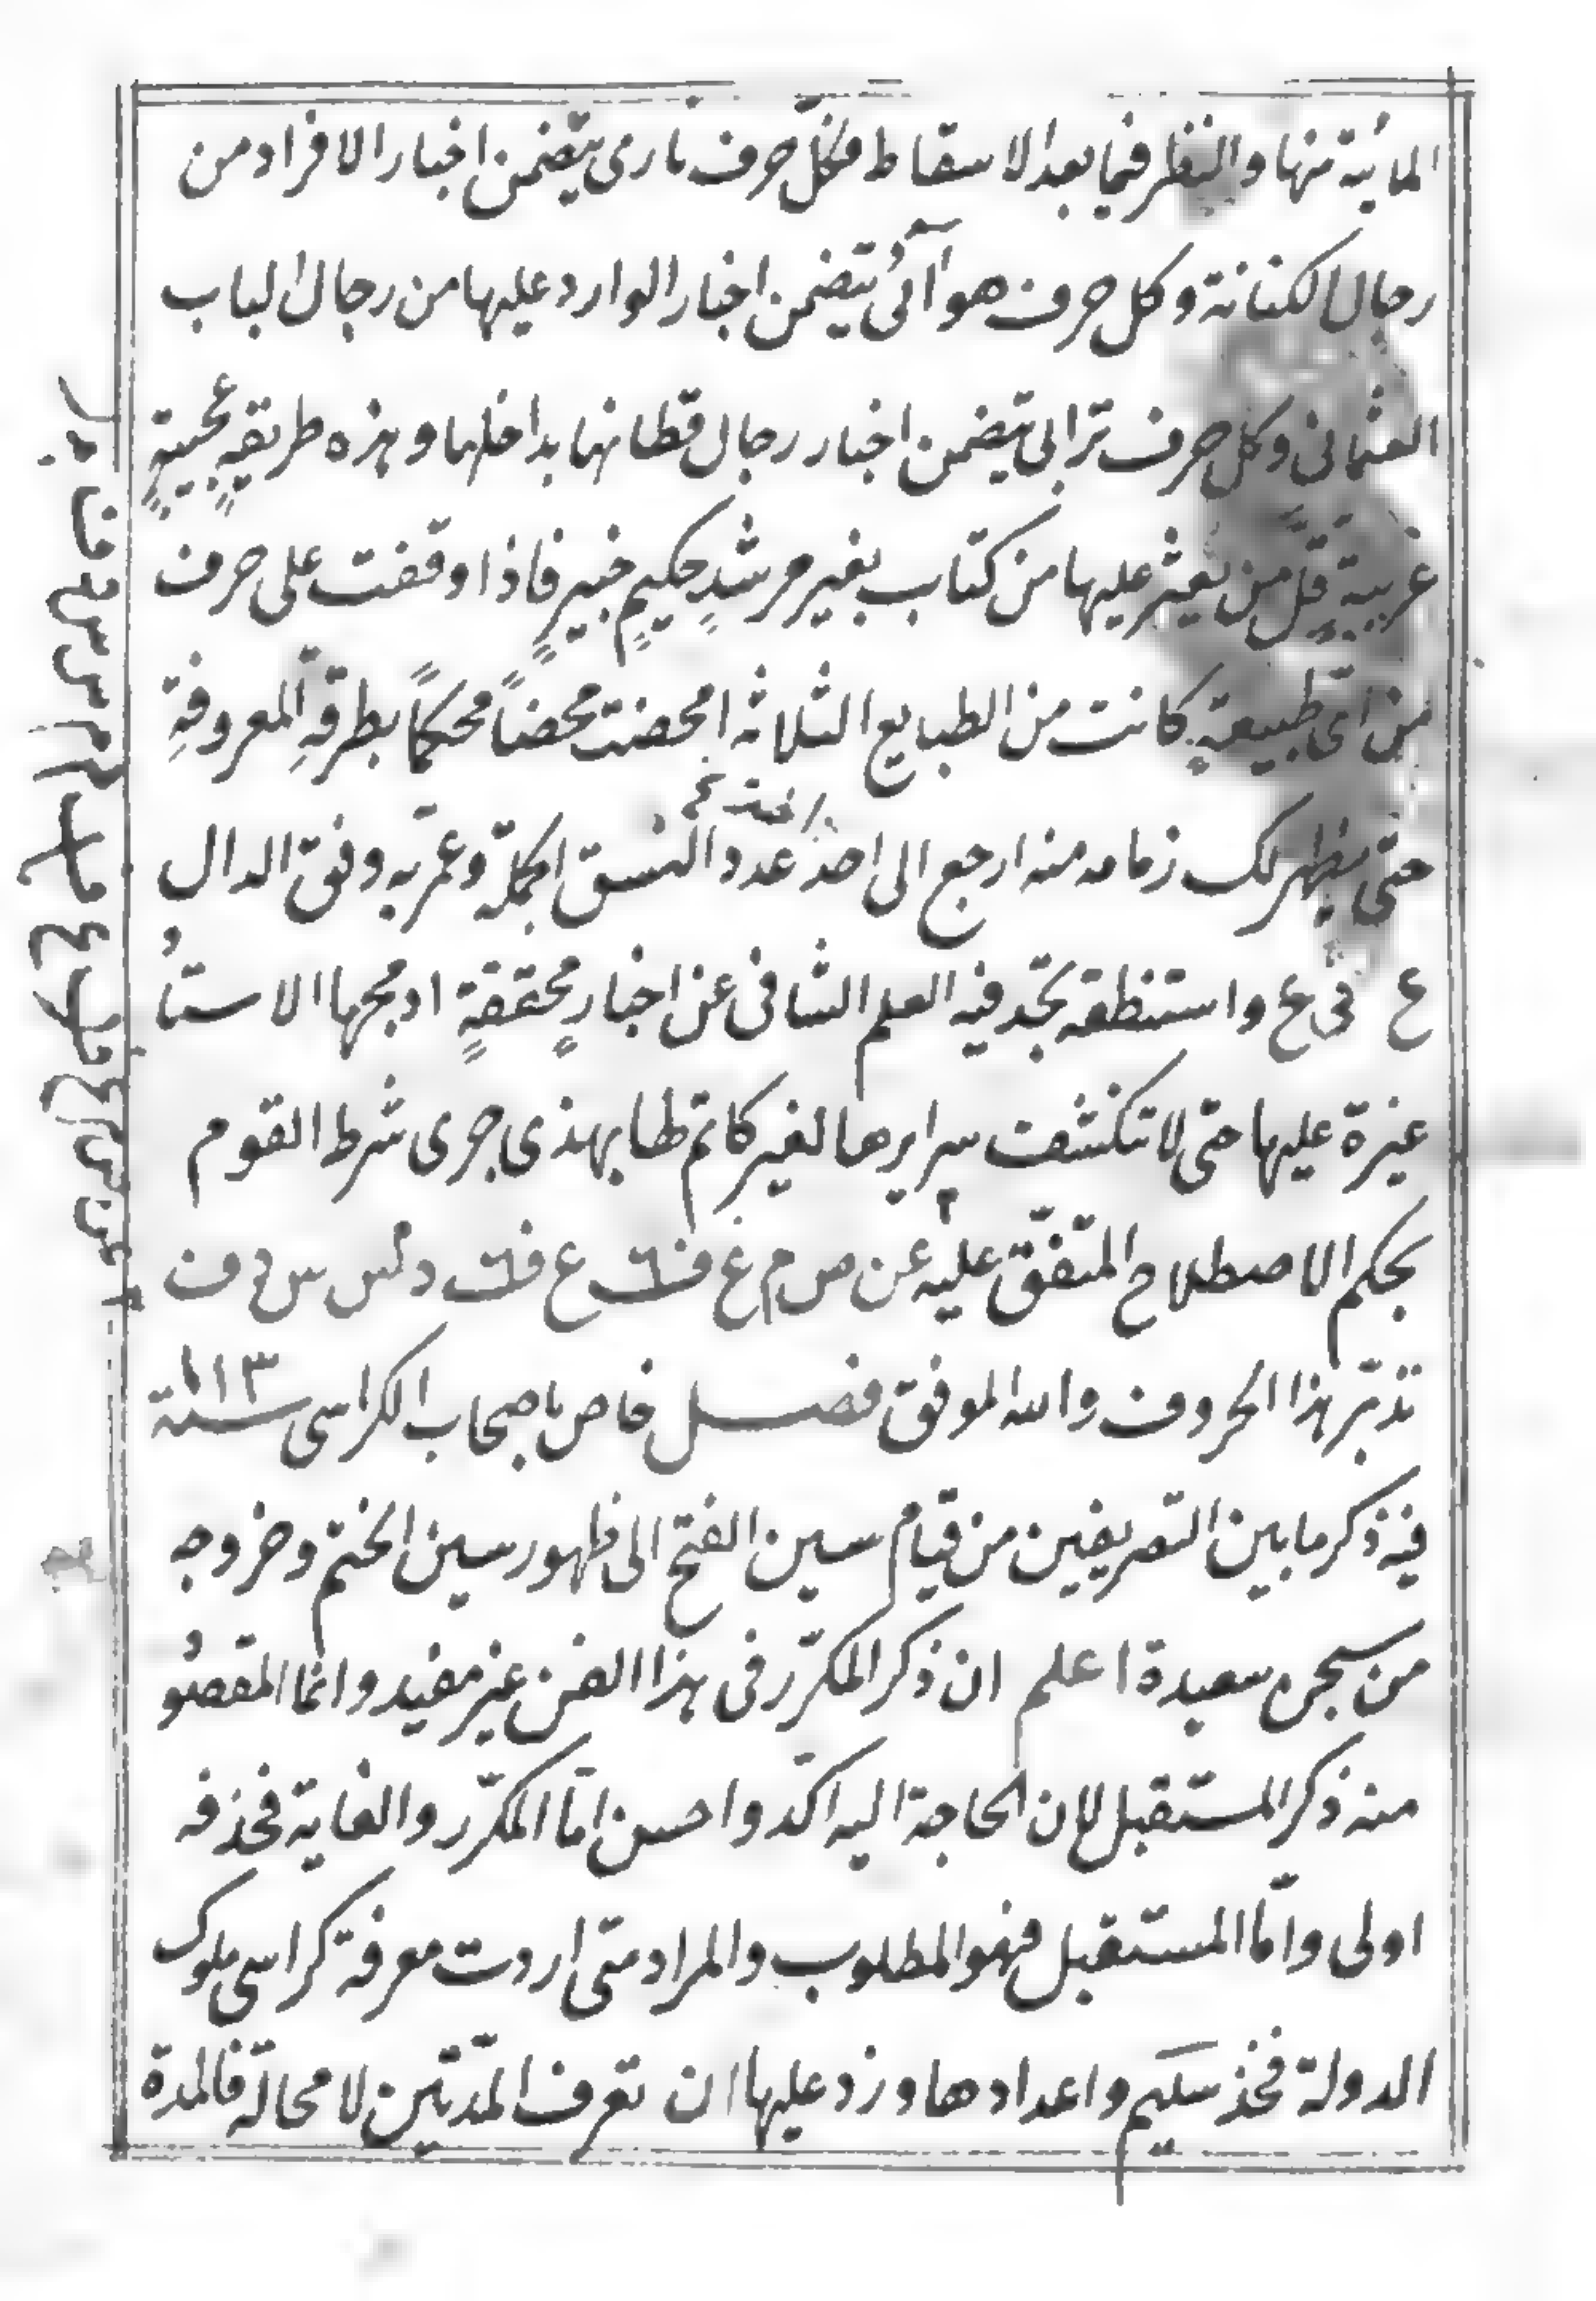 المائية منها والنظر فيما بعد الاسقاط فكلّ حرف نارى يتضمن اخبار الافراد من
رجال الكنانة وكل حرف هوآئى يتضمن اخبار الوارد عليها من رجال الباب
العثمانى وكل حرف ترابى يتضمن اخبار رجال قطانها بداخلها وهذه طريقةٍ عجيبةٍ
غريبةٍ قلَّ من يعثر عليها من كتاب بغير مرشدٍ حكيمٍ خبيرٍ فاذا وقفت على حرف
من اىّ طبيعةٍ كانت من الطبايع الثلاثه امحضت محضاً محكماً بطرقهِ المعروفةِ
حتى يظهر لك زمامه منه ارجع الى اخذ عدد النسق الجملة وعمّر به وفق الدال
ع فى ع واستنطقه تجد فيه العلم الشافى عن اخبارٍ محققةٍ ادمجها الاستاُ
غيرة عليها حتى لا تنكشف سرايرها لغير كاتم لها بهذى جرى شرط القوم
بحكم الاصطلاح المتفق عليه عن ص م غ
تدبّر هذا الحروف والله الموفق فصل خاص باصحاب الكراسى سنة ١١٣
فيه ذكر ما بين التعريفين من قيام سين الفتح الى ظهور سين الختم وخروجه
من سجن سعيدة اعلم ان ذكر المكرّر فى هذا الفن غير مفيد وانما المقصو
منه ذكر المستقبل لان الحاجة اليه اكد واحسن امّا المكرّر والغاية فحذفه
اولى وامّا المستقبل فهو المطلوب والمراد متى اردت معرفة كراسى ملوك
الدولة فخذ سكيم واعدادها وزد عليها ان تعرف المدّتين لا محالة فالمدة